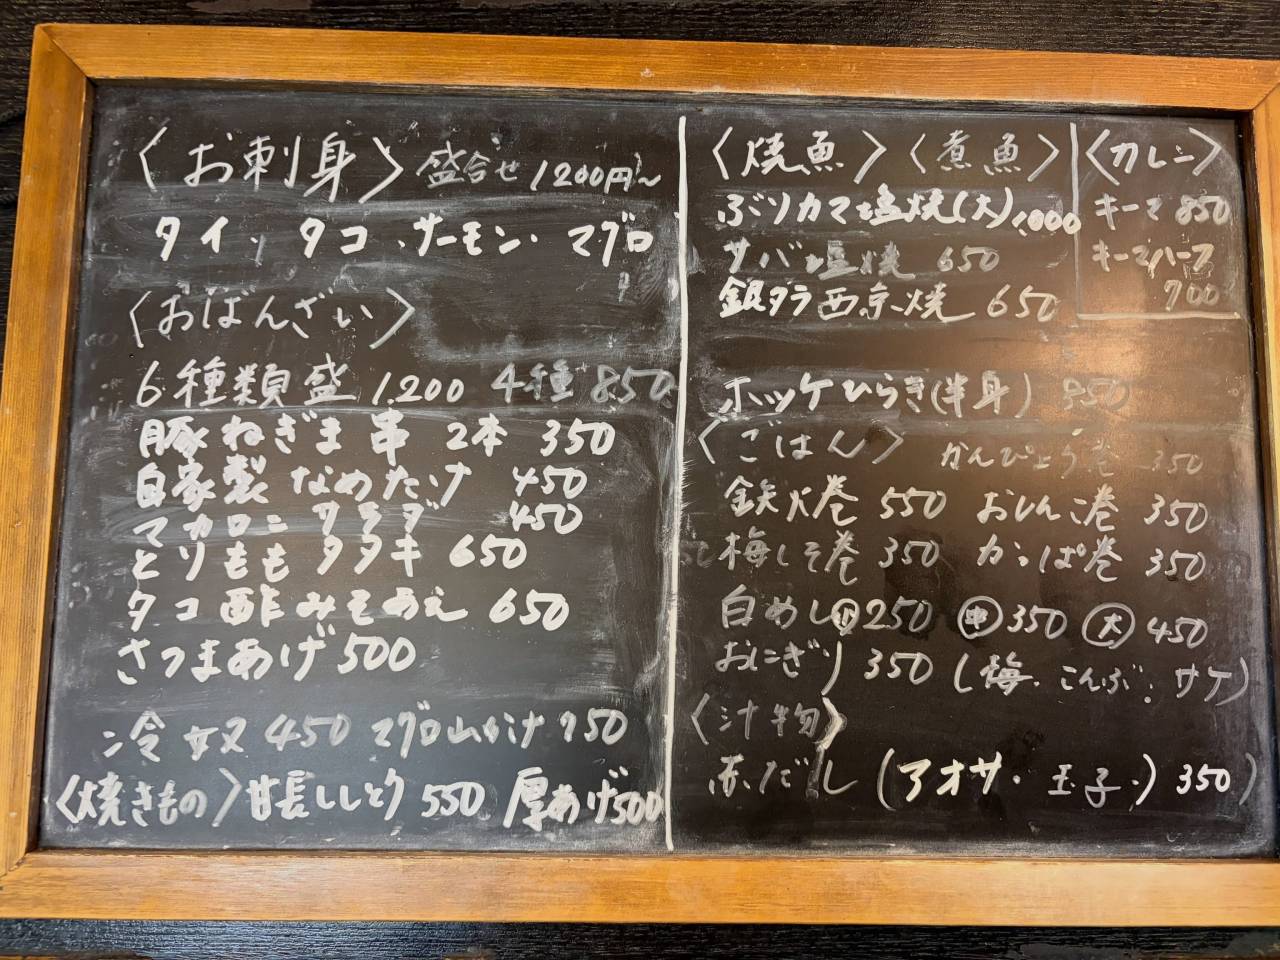 〈お刺身〉盛合せ 1200円〜
タイ・タコ・サーモン・マグロ
〈おばんざい〉
6種類盛 1.200 4種 850
豚ねぎま串 2本 350
自家製 なめたけ 450
マカロニサラダ 450
とりももタタキ 650
タコ酢みそあえ 650
さつまあげ 500
冷奴 450 マグロ山かけ 750
〈焼きもの〉甘長ししとう 550 厚あげ 500
〈焼魚〉〈煮魚〉
ぶりカマ塩焼(大) 1,000
サバ塩焼 650
銀タラ西京焼 650
ホッケひらき(半身)
〈カレー〉
キーマ 850
キーマハーフ
700
〈ごはん〉 かんぴょう巻 350
鉄火巻 550 おしんこ巻 350
梅しそ巻 350 かっぱ巻 350
白めし 小 250 中 350 大 450
おにぎり 350 (梅・こんぶ・サケ)
〈汁物〉
赤だし (アオサ・玉子・) 350